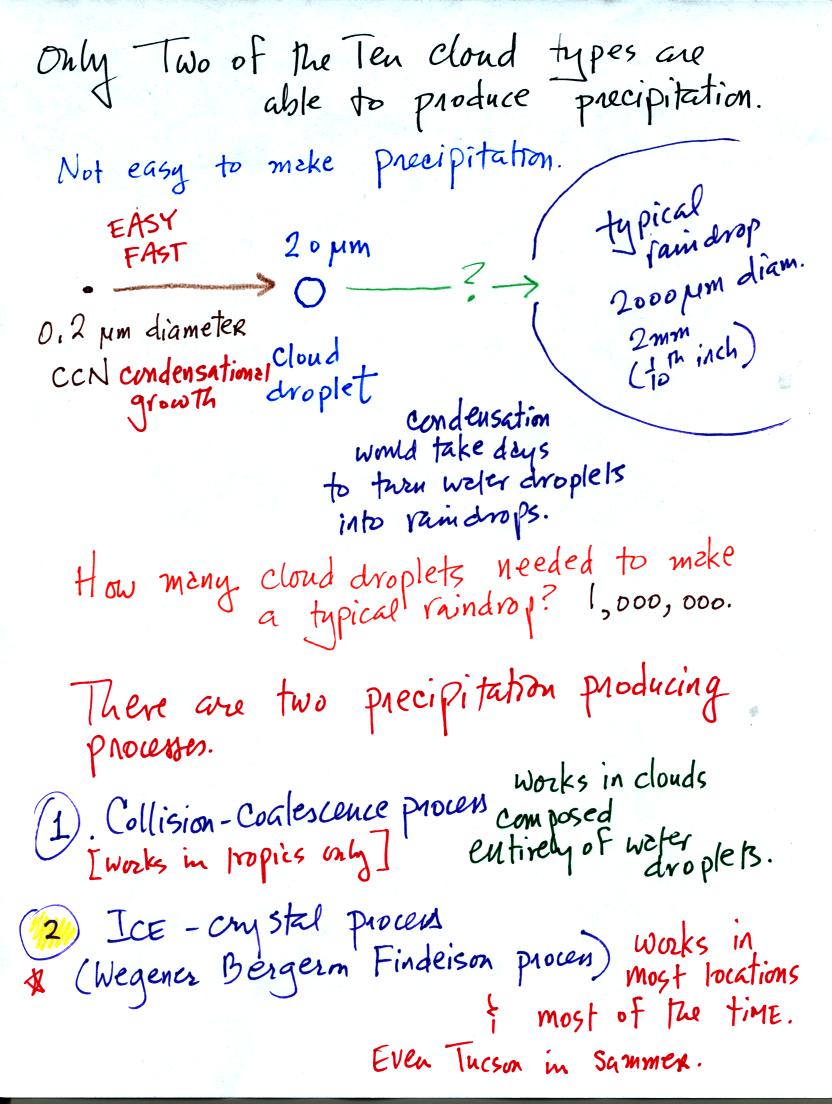 Only Two of the Ten cloud types are
able to produce precipitation.
Not easy to make precipitation.
EASY
FAST
20 μm
?
typical
raindrop
2000 μm diam.
2mm
(1/10 th inch)
0.2 μm diameter
CCN condensational
growth
cloud
droplet
condensation
would take days
to turn water droplets
into raindrops.
How many cloud droplets needed to make
a typical raindrop? 1,000,000.
There are two precipitation producing
processes.
1. Collision-Coalescence process
[works in tropics only]
works in clouds
composed
entirely of water
droplets.
2 ICE-crystal process
(Wegener Bergeron Findeison process)
works in
most locations
& most of the time.
Even Tucson in summer.